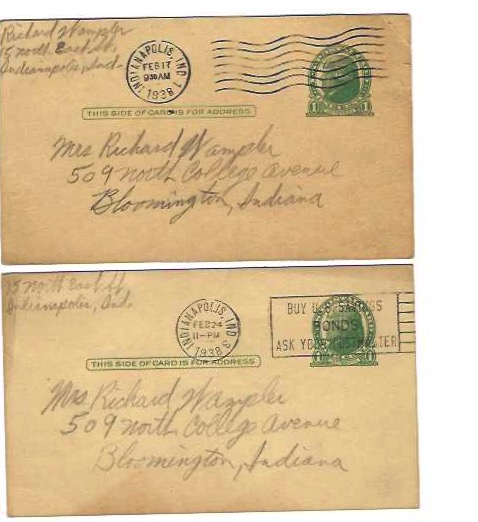 Richard Wampler
15 North East St,
Indianapolis, Ind.
INDIANAPOLIS, IND. 1
FEB 17
930 AM
1938
THIS SIDE OF CARD IS FOR ADDRESS
Mrs Richard Wampler
509 North College Avenue
Bloomington, Indiana
15 North East St
Indianapolis, Ind.
INDIANAPOLIS, IND. 3
FEB 24
11-PM
1938
BUY U.S. SAVINGS
BONDS
ASK YOUR POSTMASTER
THIS SIDE OF CARD IS FOR ADDRESS
Mrs Richard Wampler
509 North College Avenue
Bloomington, Indiana